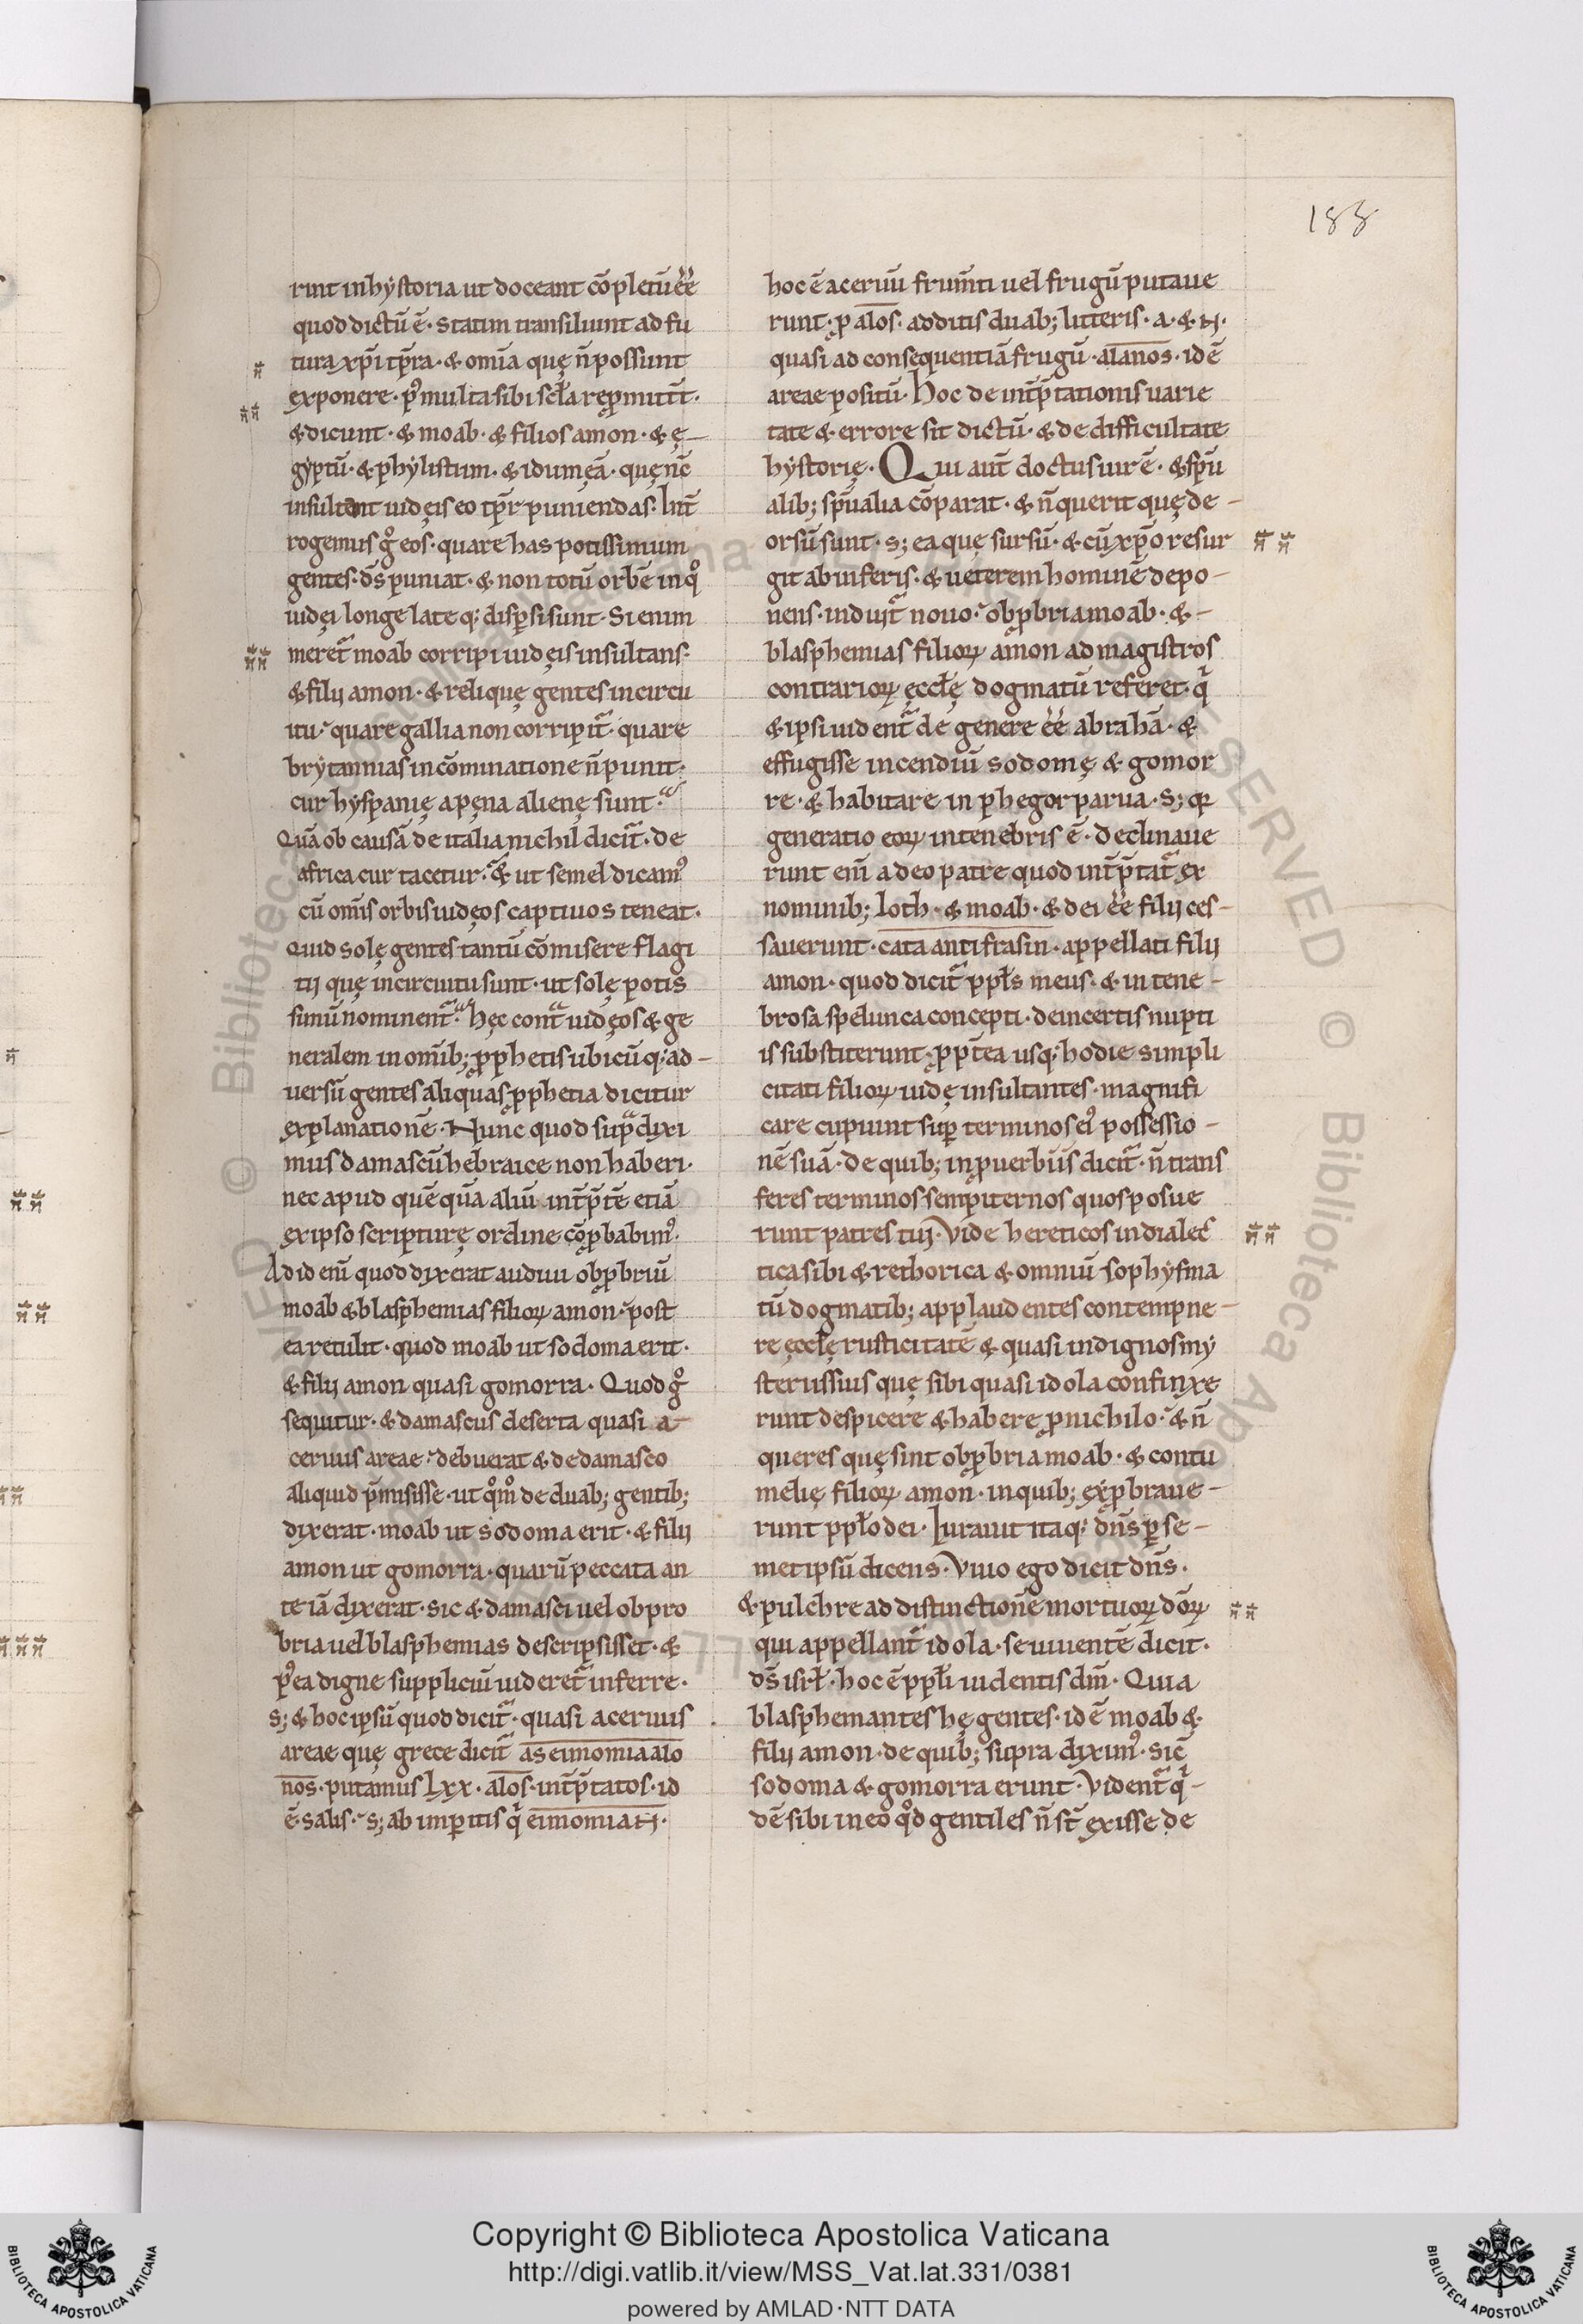 188
rint inhystoria ut doceant cōpletū ēē
quod dictū ē · statim transiliunt ad fu
tura xp̄i tp̄ra · & omīa quę n̄ possunt
exponere · p⁹ multa sibi scl̄a rep̱mittt̄ ·
& dicunt · & moab · & filios amon · & ę-
gyptū · & phylistum · & idumęā · quę nc̄
insultent iudęis eo tp̄r puniendas · Int̄
rogemus g̊ eos · quare has potissimum
gentes · d̄s puniat · & non totū orbē in q̊
iudęi longe late q; disp̱si sunt · Si enim
meret᷑ moab corripi iudęis insultans ·
& filij amon · & reliquę gentes in circu
itu · quare gallia non corripit᷑ · quare
brytannias in cōminatione n̄ punit ·
cur hyspanię a pęna alienę sunt ·
Quā ob causā de italia nichil dicit᷑ · de
africa cur tacetur · & ut semel dicam⁹
cū omīs orbis iudęos captiuos teneat ·
Quid solę gentes tantū cōmisere flagi
tij quę in circuitu sunt · ut solę potis
simū nominent᷑ · hęc contᷓ iudęos & ge
neralem in omīb; p̱phetis ubicūq; ad-
uersū gentes aliquas p̱phetia dicitur
explanationē · Nunc quod supᷓ dixi
mus damascū hebraice non haberi ·
nec apud quēquā aliū int̄p̄tē etiā
ex ipso scripturę ordine cōp̱babim⁹ ·
Ad id enī quod dixerat audiui obp̱briū
moab & blasphemias filioꝝ amon · post
ea retulit · quod moab ut sodoma erit ·
& filij amon quasi gomorra · Quod g̊
sequitur · & damascus deserta quasi a-
ceruus areae · debuerat & de damasco
aliquid p̄misisse · ut q̊m̊ de duab; gentib;
dixerat · moab ut sodoma erit · & filij
amon ut gomorra · quarū peccata an
te iā dixerat · sic & damasci uel obpro
bria uel blasphemias descripsisset · &
p⁹ea digne suppliciū uideret᷑ inferre ·
s; & hoc ipsū quod dicit᷑ · quasi aceruus
areae quę grece dicit᷑ as eimomia alo
nos · putamus Lxx · alos · int̄p̄tatos · id
ē · salis · s; ab imp̱itis qⁱ eimomia H ·
hoc ē aceruū frum̄ti uel frugū putaue
runt · p̱ alos · additis duab; litteris · a · & N ·
quasi ad consequentiā frugū · alanos · id ē
areae positū · Hoc de int̄p̄tationis uarie
tate & errore sit dictū · & de difficultate
hystorię · Qui aut̄ doctus uir ē · & sp̄u
alib; sp̄ualia cōparat · & n̄ querit quę de-
orsū sunt · s; ea quę sursū · & cū xp̄o resur
git ab inferis · & ueterem hominē depo-
nens · induit᷑ nouo · obp̱bria moab · &-
blasphemias filioꝝ amon ad magistros
contrarioꝝ ęccl̄ę dogmatū referet · qⁱ
& ipsi uident᷑ de genere ēē abrahā · &
effugisse incendiū sodomę & gomor
re · & habitare in phegor parua · s; qꝛ
generatio eoꝝ in tenebris ē · declinaue
runt enī a deo patre quod int̄p̄tat᷑ ex
nominib; loth · & moab · & dei ēē filij ces-
sauerunt · cata antifrasin · appellati filij
amon · quod dicit᷑ ppl̄s meus · & in tene-
brosa spelunca concepti · de incertis nupti
is substiterunt · p̱pt̄ea usq; hodie simpli
citati filioꝝ iudę insultantes · magnifi
care cupiunt sup̱ terminos ei⁹ possessio-
nē suā · de quib; in p̱uerbiis dicit᷑ · n̄ trans
feres terminos sempiternos quos posue
runt patres tui · Vide hereticos in dialec̄
tica sibi & rethorica & omniū sophysma
tū dogmatib; applaudentes contempne-
re ęccl̄ę rusticitatē & quasi indignos my
steriis suis quę sibi quasi idola confinxe
runt despicere & habere p̱ nichilo · & n̄
queres quę sint obp̱bria moab · & contu
melię filioꝝ amon · in quib; exp̱braue-
runt ppl̄o dei · Iurauit itaq; dn̄s p̱ se-
met ipsū dicens · Viuo ego dicit dn̄s ·
& pulchre ad distinctionē mortuoꝝ dōꝝ
qui appellant᷑ idola · se uiuentē dicit ·
d̄s isrl̄ · hoc ē ppl̄i uidentis dm̄ · Quia
blasphemantes hę gentes · id ē moab &
filij amon · de quib; supra dixim⁹ · sic̄
sodoma & gomorra erunt · Vident᷑ qⁱ-
dē sibi in eo q̊d gentiles n̄ st̄ exisse de
Copyright © Biblioteca Apostolica Vaticana
http://digi.vatlib.it/view/MSS_Vat.lat.331/0381
powered by AMLAD·NTT DATA